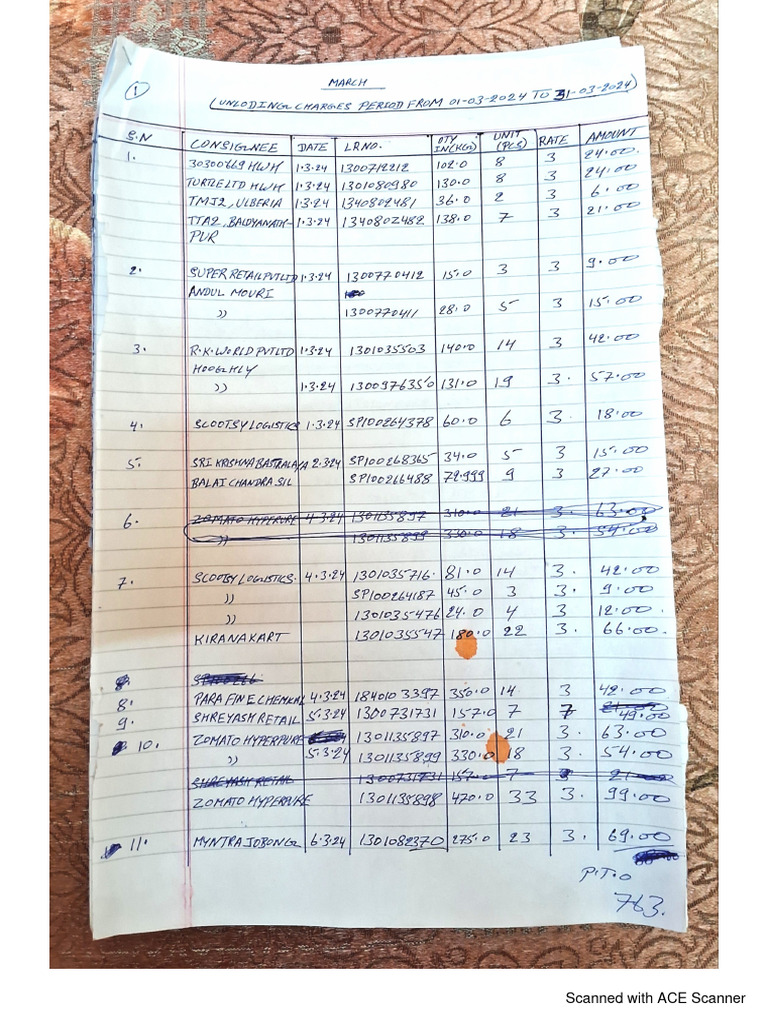 1
MARCH
(UNLODING CHARGES PERIOD FROM 01-03-2024 TO 31-03-2024)
S.N CONSIGNEE DATE LRNO. QTY IN(KGS) UNIT (PCS) RATE AMOUNT
1. 30300669 HWH 1.3.24 1300712212 102.0 8 3 24.00
TURTLE LTD HWH 1.3.24 1301080980 130.0 8 3 24.00
TMJ2, ULBERIA 1.3.24 1340802481 36.0 2 3 6.00
TTA2, BALDYANATH- 1.3.24 1340802482 138.0 7 3 21.00
PUR
2. SUPER RETAIL PVT LTD 1.3.24 1300770412 15.0 3 3 9.00
ANDUL MOURI
)) 1300770411 28.0 5 3 15.00
3. R.K. WORLD PVT LTD 1.3.24 1301035503 140.0 14 3 42.00
HOOGHLY
)) 1.3.24 1300976350 131.0 19 3. 57.00
4. SCOOTSY LOGISTICS 1.3.24 SP100264378 60.0 6 3. 18.00
5. SRI KRISHNA BASTRALAYA 2.3.24 SP100268365 34.0 5 3 15.00
BALAI CHANDRA SIL SP100266488 72.999 9 3 27.00
6. ZOMATO HYPERPURE 4.3.24 1301135897 310.0 21 3. 63.00
)) 1301135899 330.0 18 3. 54.00
7. SCOOTSY LOGISTICS. 4.3.24 1301035716. 81.0 14 3. 42.00
)) SP100264187 45.0 3 3. 9.00
)) 1301035476 24.0 4 3 12.00.
KIRANAKART 1301035547 180.0 22 3. 66.00.
8. PARA FINE CHEMICAL 4.3.24 1840103397 350.0 14 3 42.00
9. SHREYASH RETAIL 5.3.24 1300731731 157.0 7 7 49.00
10. ZOMATO HYPERPURE 1301135897 310.0 21 3. 63.00
)) 5.3.24 1301135899 330.0 18 3. 54.00
SHREYASH RETAIL 1300731731 157.0 7 3 21.00
ZOMATO HYPERPURE 1301135898 470.0 33 3. 99.00
11. MYNTRA JOBONG 6.3.24 1301082370 275.0 23 3. 69.00
P.T.O
763.
Scanned with ACE Scanner